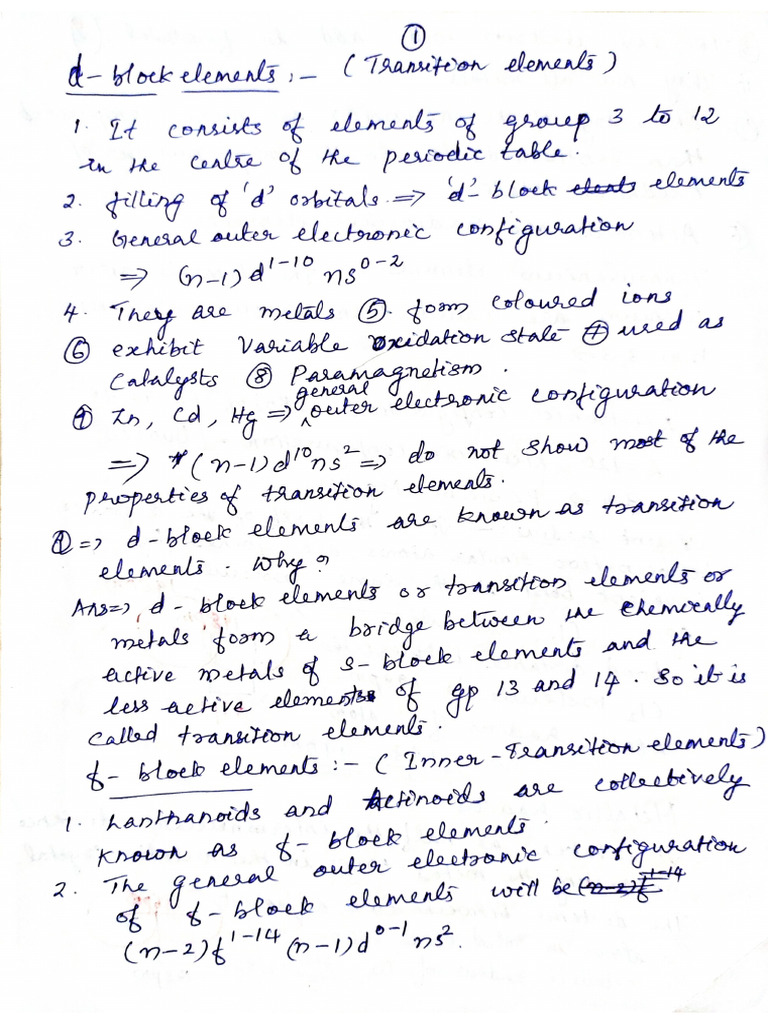 ①
d-block elements:- (Transition elements)
1. It consists of elements of group 3 to 12
in the centre of the periodic table.
2. filling of 'd' orbitals ⇒ 'd'-block elements
3. General outer electronic configuration
⇒ (n-1)d¹⁻¹⁰ ns⁰⁻²
4. They are metals ⑤. form coloured ions
⑥ exhibit variable oxidation state ⑦ used as
catalysts ⑧ Paramagnetism.
general
⑨ Zn, Cd, Hg ⇒ ^outer electronic configuration
⇒ (n-1)d¹⁰ns² ⇒ do not show most of the
properties of transition elements.
Q ⇒ d-block elements are known as transition
elements. Why?
Ans⇒ d-block elements or transition elements or
metals form a bridge between the chemically
active metals of s-block elements and the
less active elements of gp 13 and 14. So it is
called transition elements.
f-block elements:- (Inner-Transition elements)
1. Lanthanoids and Actinoids are collectively
known as f-block elements.
2. The general outer electronic configuration
of f-block elements will be
(n-2)f¹⁻¹⁴ (n-1)d⁰⁻¹ ns².